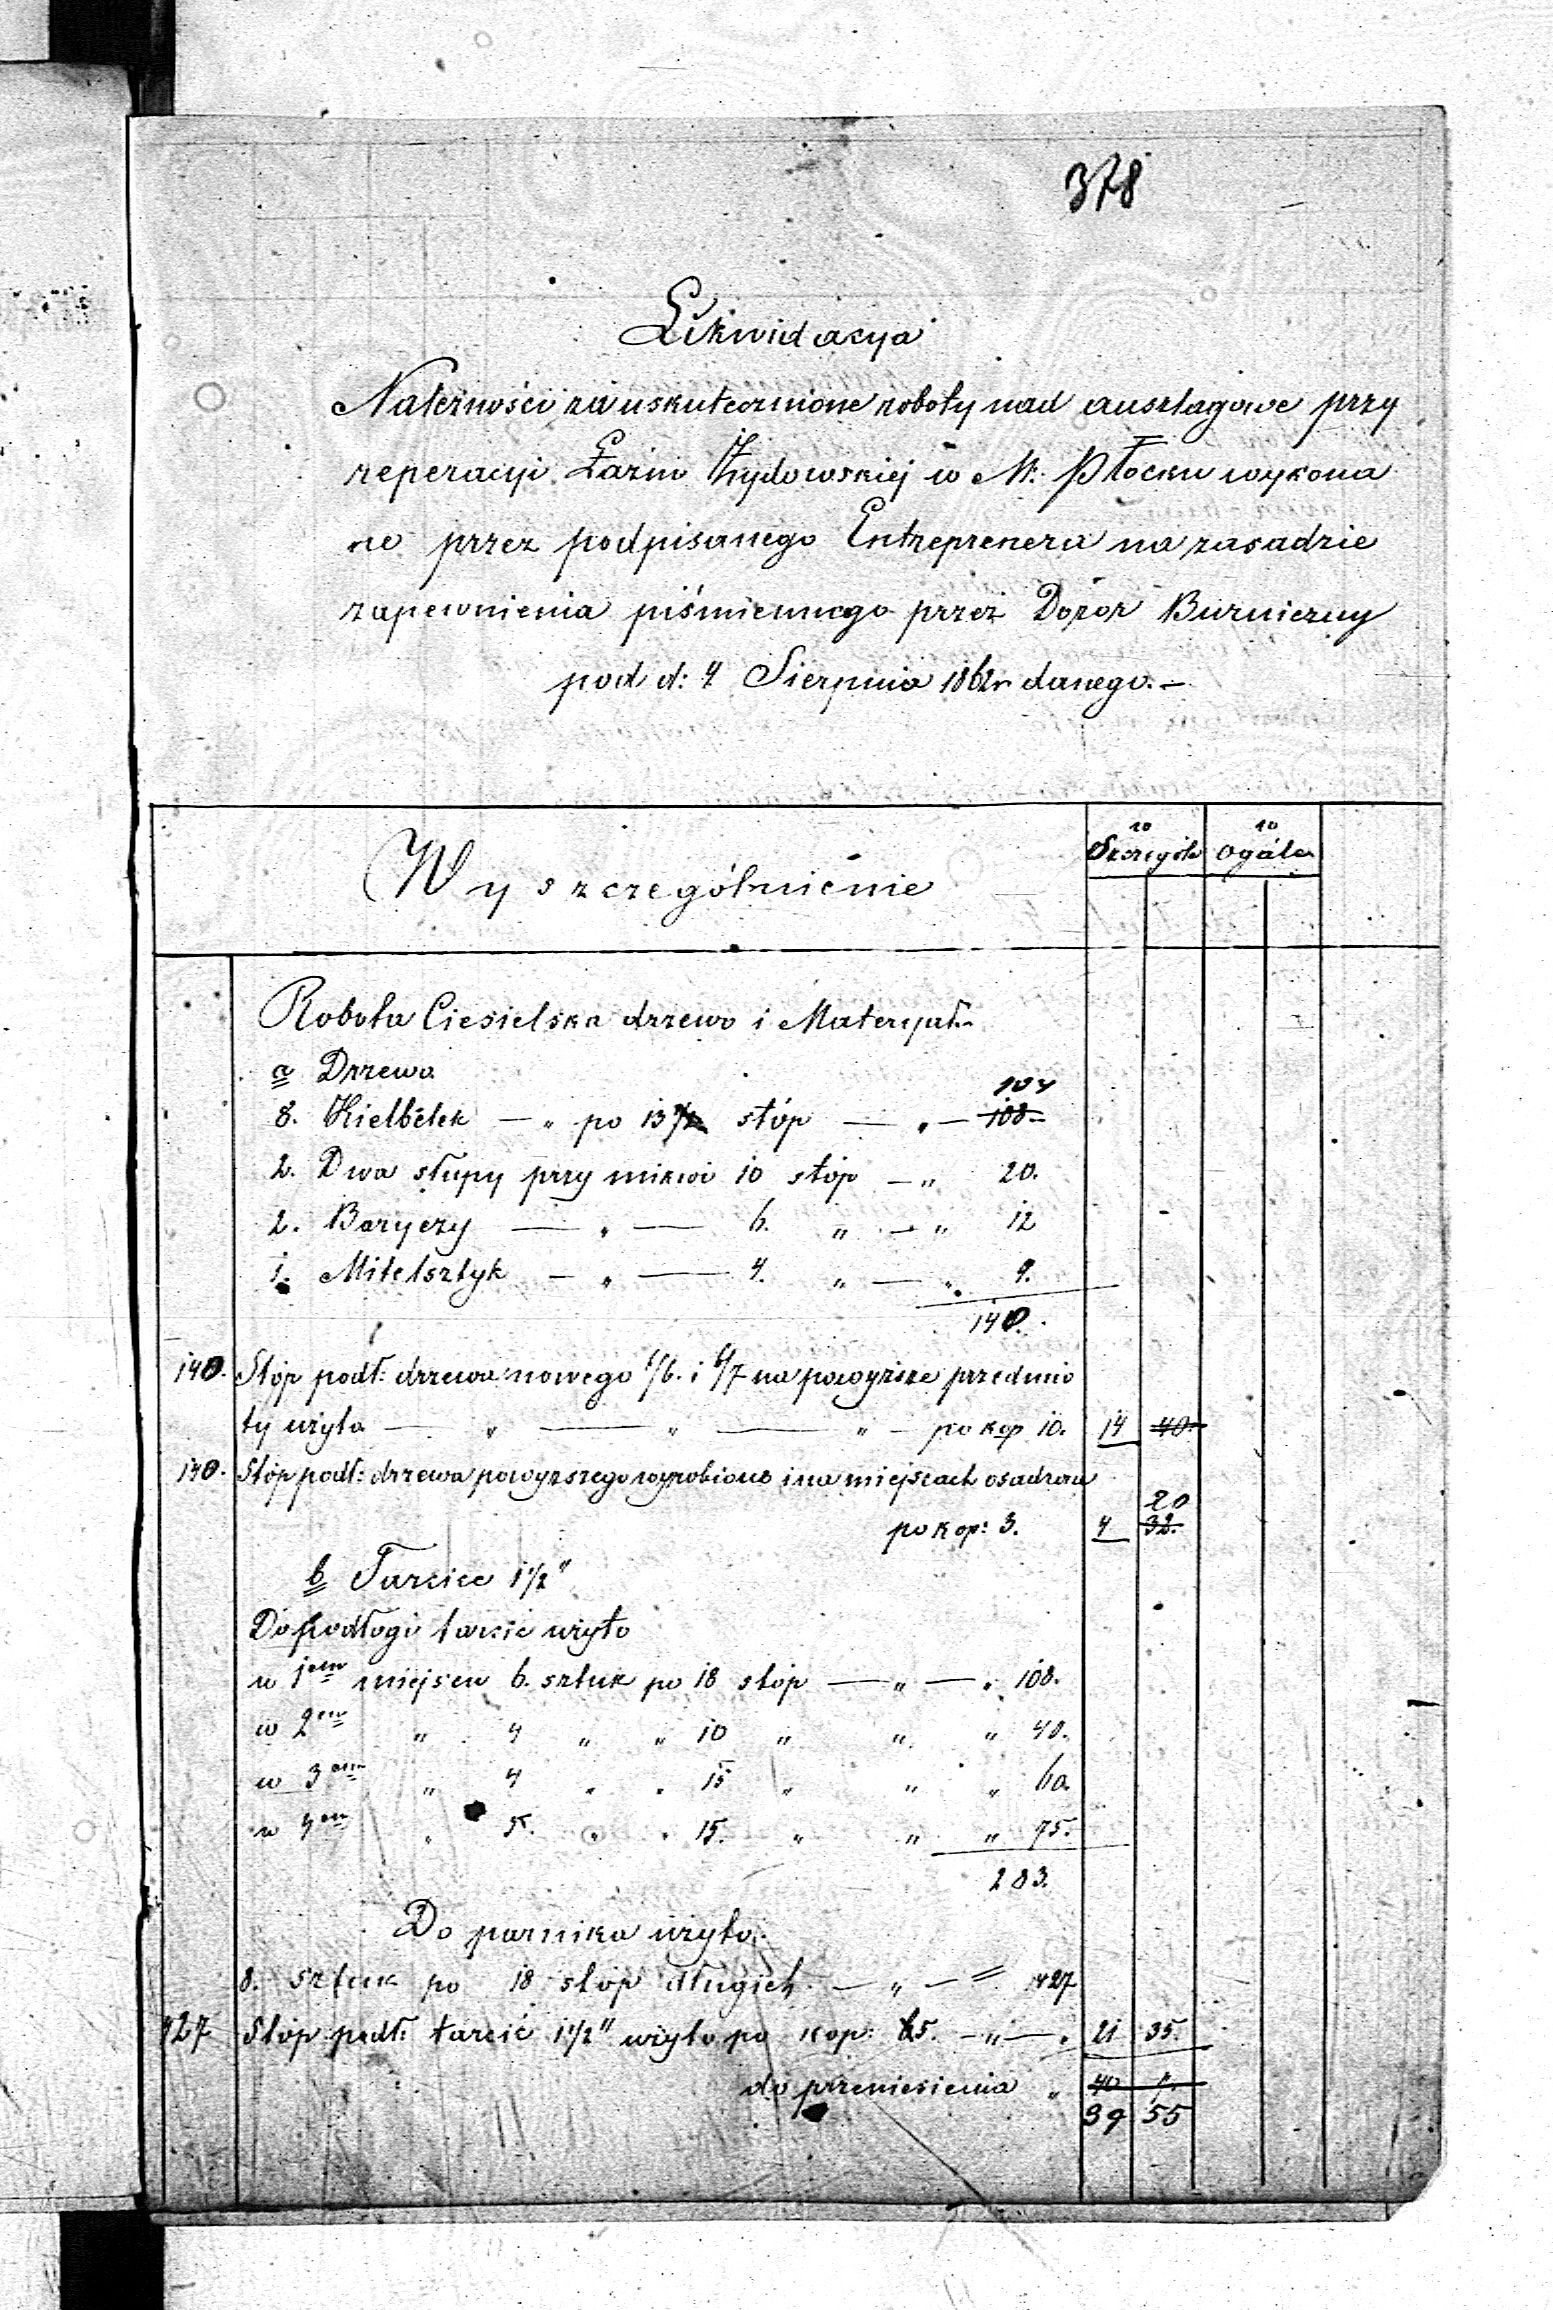 378
Likwidacya
Należności za uskutecznione roboty nad anszlagowe przy
reperacyi Łazni Żydowskiej w M: Płocku wykona
ne przez podpisanego Entreprenera na zasadzie
zapewnienia piśmiennego przez Dozor Bużniczny
pod d: 4 Sierpnia 1862r danego.–
Wyszczególnienie
Szczegół Ogółem
Robota Ciesielska drzewo i Materyał
a Drzewo
104
8. Kielbelek — „ po 13 stóp — „ — 108–
2. Dwa słupy przy mikwi 10 stóp — „ 20.
2. Baryery — „ — 6. „ — „ 12
1. Mitelsztyk — „ — 4. „ — „ 4.
140.
140. Stóp podł: drzewa nowego 6/6. i 6/7 na powyższe przedmio
ty użyto — „ — „ — „ — po kop 10. 14 40.
140. Stóp podł: drzewa powyższego wyrobiono i na miejscach osadzono
20
po kop: 3. 4 32.
b Tarcice 1 1/2"
Do Podłogi tarcic użyto
w 1em miejscu 6. sztuk po 18 stóp — „ — „ 108.
w 2em „ 4 „ „ 10 „ „ „ 40.
w 3em „ 4 „ „ 15 „ „ „ 60.
w 4em „ 5. „ „ 15. „ „ „ 75.
283.
Do parnika użyto.
8. sztuk po 18 stóp długich — „ — 427
427 Stóp podł: tarcic 1 1/2" użyto po kop: 5. — „ — „ 21 35.
do przeniesienia „ 40 „
39 55